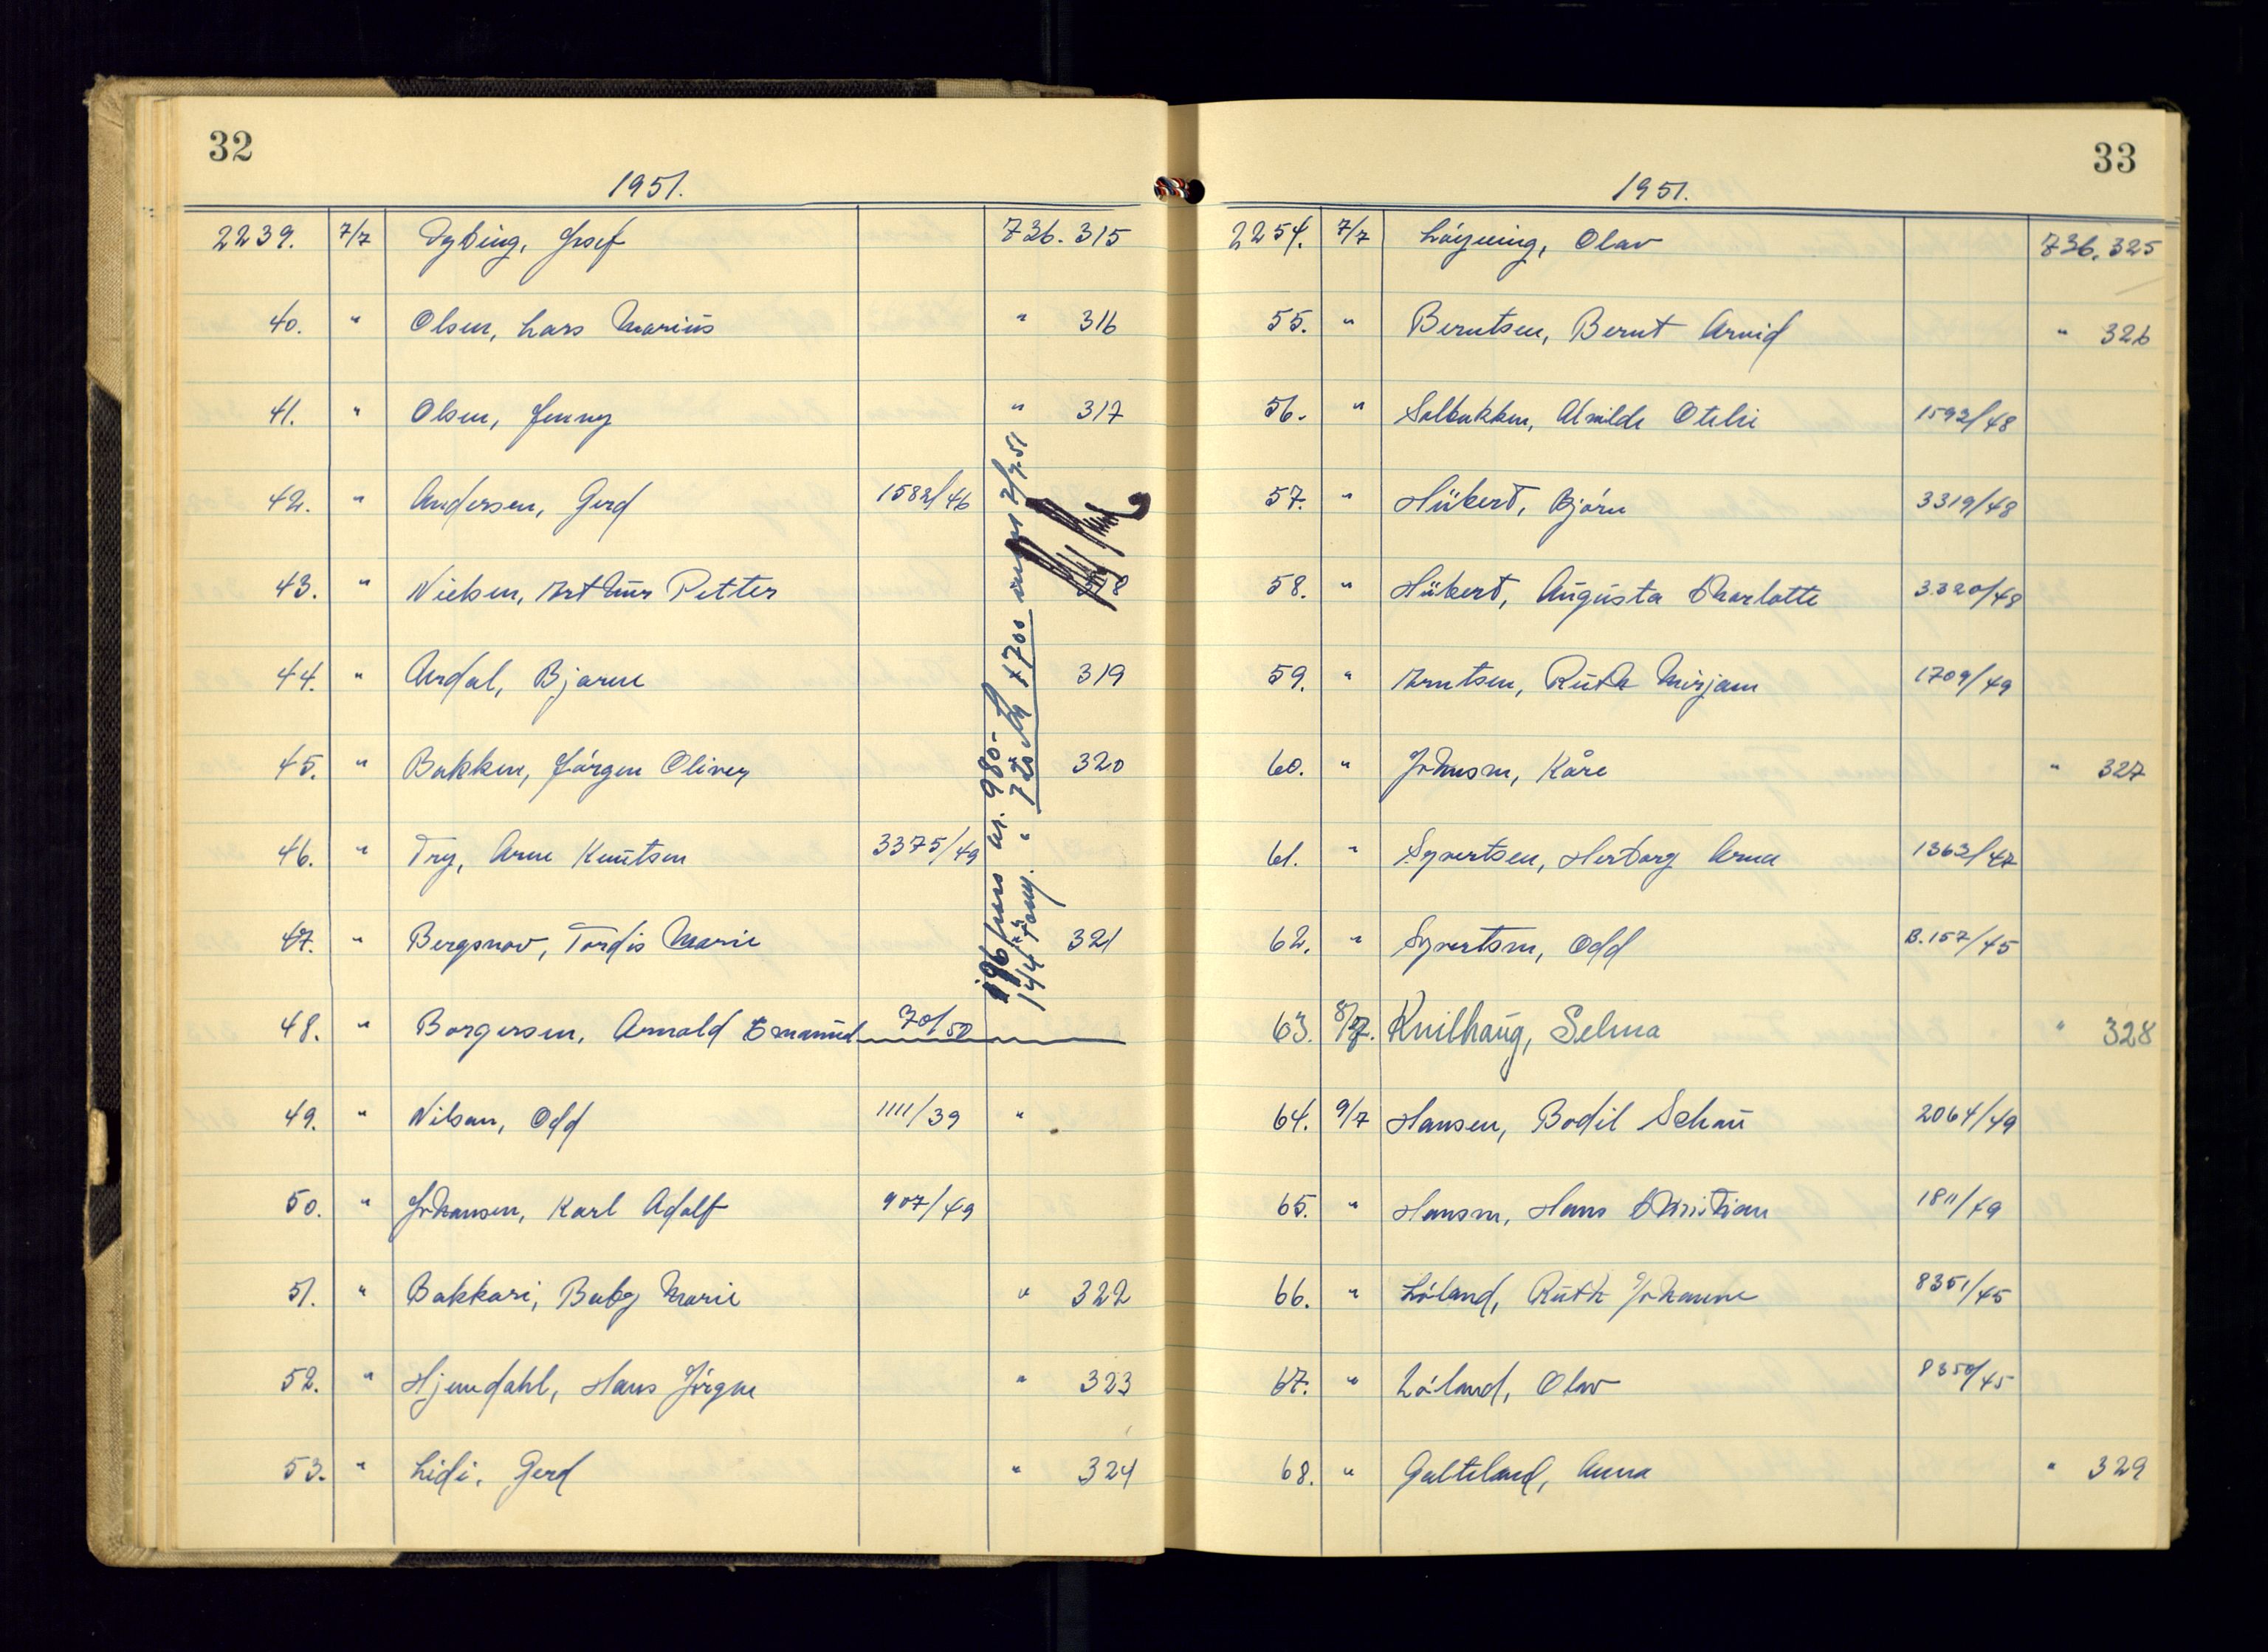 32
1951.
2239. 7/7 Dybing, Josef 736.315
40. " Olsen, Lars Marius " 316
41. " Olsen, Jenny " 317
42. " Andersen, Gerd 1582/46
43. " Nielsen, Arthur Petter 318
44. " Årdal, Bjarne 319
45. " Bakken, Jörgen Oliver 320
46. " Try, Arne Knutsen 3375/49
47. " Bergsnov, Tordis Marie 321
48. " Borgersen, Arnold Emanuel 70/50
49. " Nilsen, Odd 1111/39 "
50. " Johansen, Karl Adolf 907/49
51. " Bakkari, Baby Marie " 322
52. " Hjemdahl, Hans Jörgen " 323
53. " Lidi, Gerd " 324
196 pass kr. 980.-
144 " " 720 1700 2/7.51
33
1951.
2254. 7/7 Löyning, Olav 736.325
55. " Berntsen, Bernt Arvid " 326
56. " Solbakken, Alvilde Otelie 1592/48
57. " Hübert, Björn 3319/48
58. " Hübert, Augusta Charlotte 3320/48
59. " Arntsen, Ruth Mirjam 1709/49
60. " Johnsen, Kåre " 327
61. " Syvertsen, Herborg Arna 1363/47
62. " Syvertsen, Odd B.157/45
63. 8/7. Knilhaug, Selma " 328
64. 9/7 Hansen, Bodil Schau 2064/49
65. " Hansen, Hans Christian 1811/49
66. " Löland, Ruth Johanne 8351/45
67. " Löland, Olav 8350/45
68. " Galteland, Anna " 329